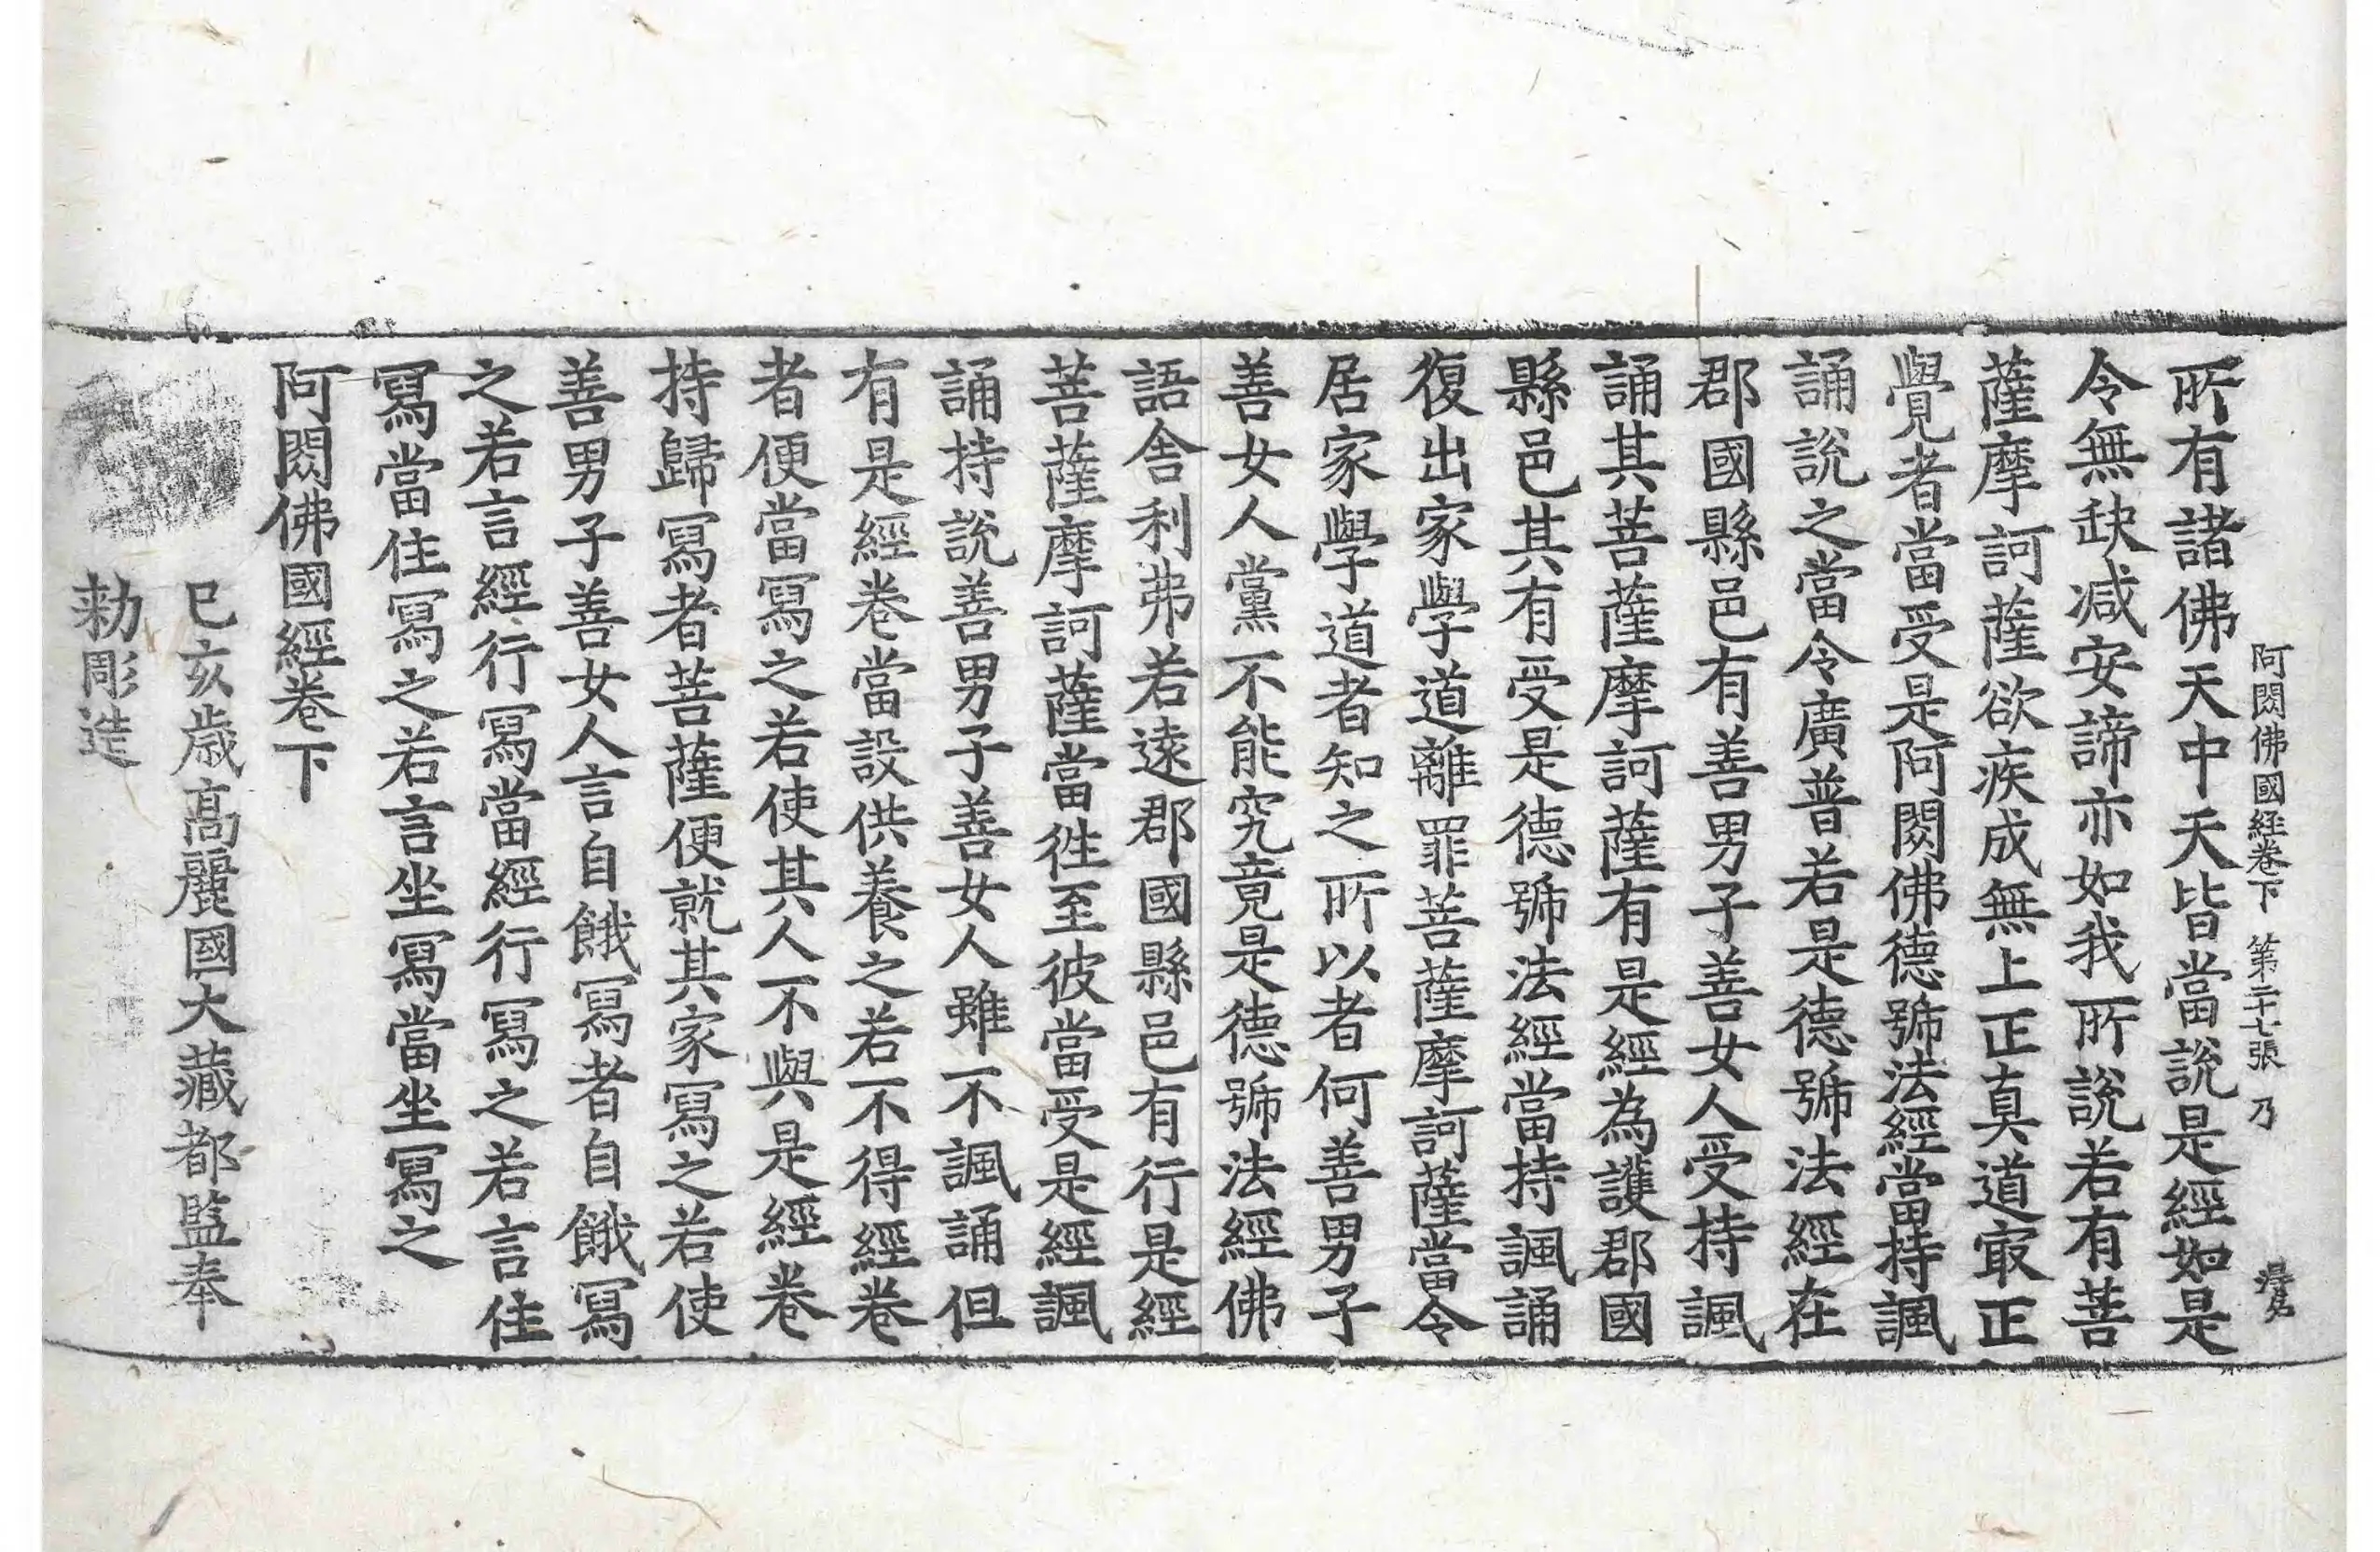 阿閦佛國經卷下 第二十七張 乃
所有諸佛天中天皆當說是經如是
令無缺减安諦亦如我所說若有菩
薩摩訶薩欲疾成無上正真道冣正
覺者當受是阿閦佛德號法經當持諷
誦說之當令廣普若是德號法經在
郡國縣邑有善男子善女人受持諷
誦其菩薩摩訶薩有是經為護郡國
縣邑其有受是德號法經當持諷誦
復出家學道離罪菩薩摩訶薩當令
居家學道者知之所以者何善男子
善女人黨不能究竟是德號法經佛
語舍利弗若遠郡國縣邑有行是經
菩薩摩訶薩當徃至彼當受是經諷
誦持說善男子善女人雖不諷誦但
有是經卷當設供養之若不得經卷
者便當寫之若使其人不與是經卷
持歸寫者菩薩便就其家寫之若使
善男子善女人言自餓寫者自餓寫
之若言經行寫當經行寫之若言住
寫當住寫之若言坐寫當坐寫之
阿閦佛國經卷下
己亥歲高麗國大藏都監奉
勅彫造